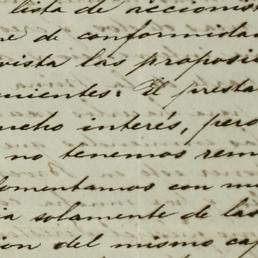 lista de accionis
re de conformidad
vista las proposi
nientes: El presta
mucho interés, pero
no tenemos rem
omentamos con m
ia solamente de las
ion del mismo ca